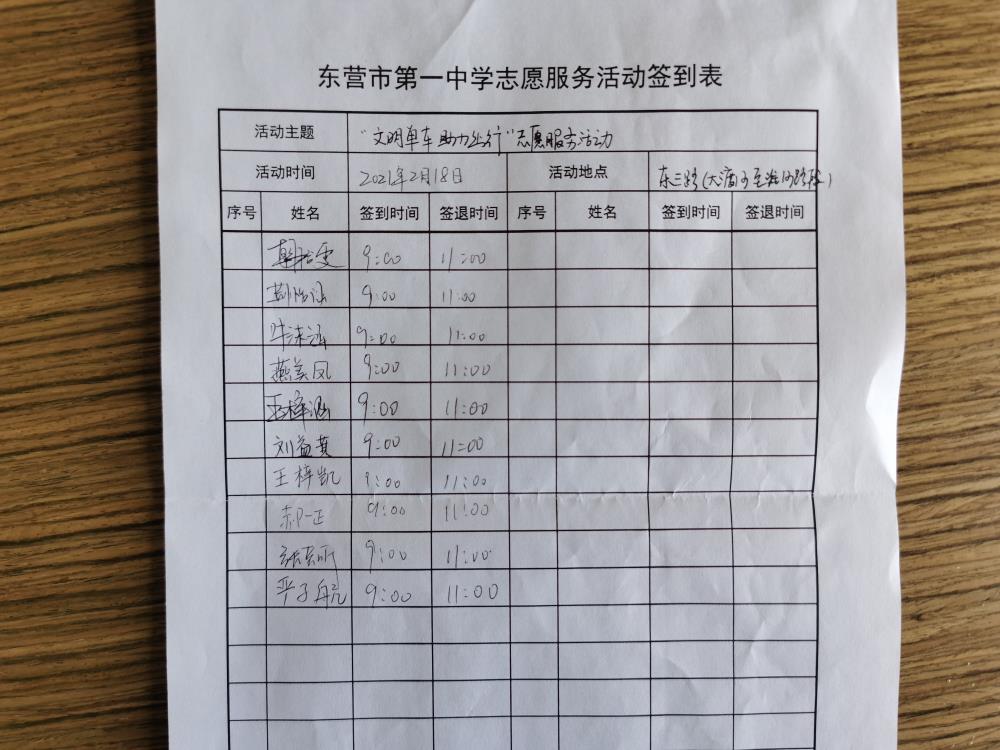 东营市第一中学志愿服务活动签到表
活动主题 "文明单车 助力出行"志愿服务活动
活动时间 2021年2月18日 活动地点 东三路(大渡河至淮河路段)
序号 姓名 签到时间 签退时间 序号 姓名 签到时间 签退时间
9:00 11:00
9:00 11:00
9:00 11:00
燕美凤 9:00 11:00
王梓涵 9:00 11:00
刘益萁 9:00 11:00
王梓凯 9:00 11:00
郝一正 9:00 11:00
9:00 11:00
严子航 9:00 11:00